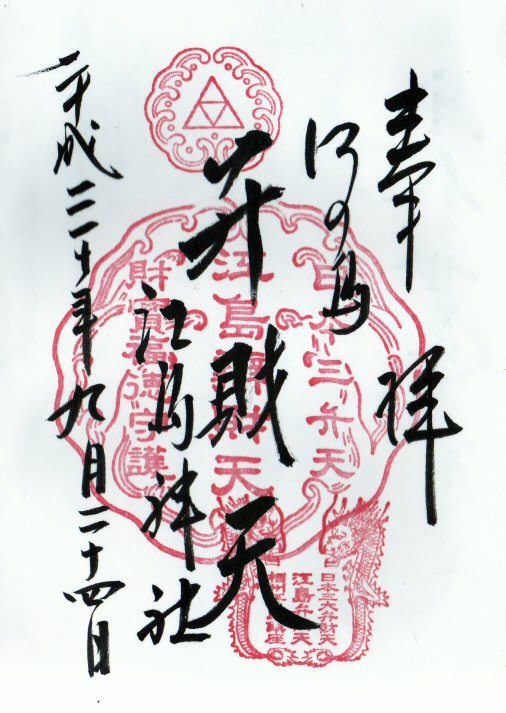 奉拝
江の島
弁財天
江島神社
平成三十年九月二十四日
日本三弁天
江島辨財天
財寶福徳守護
日本三大弁財天